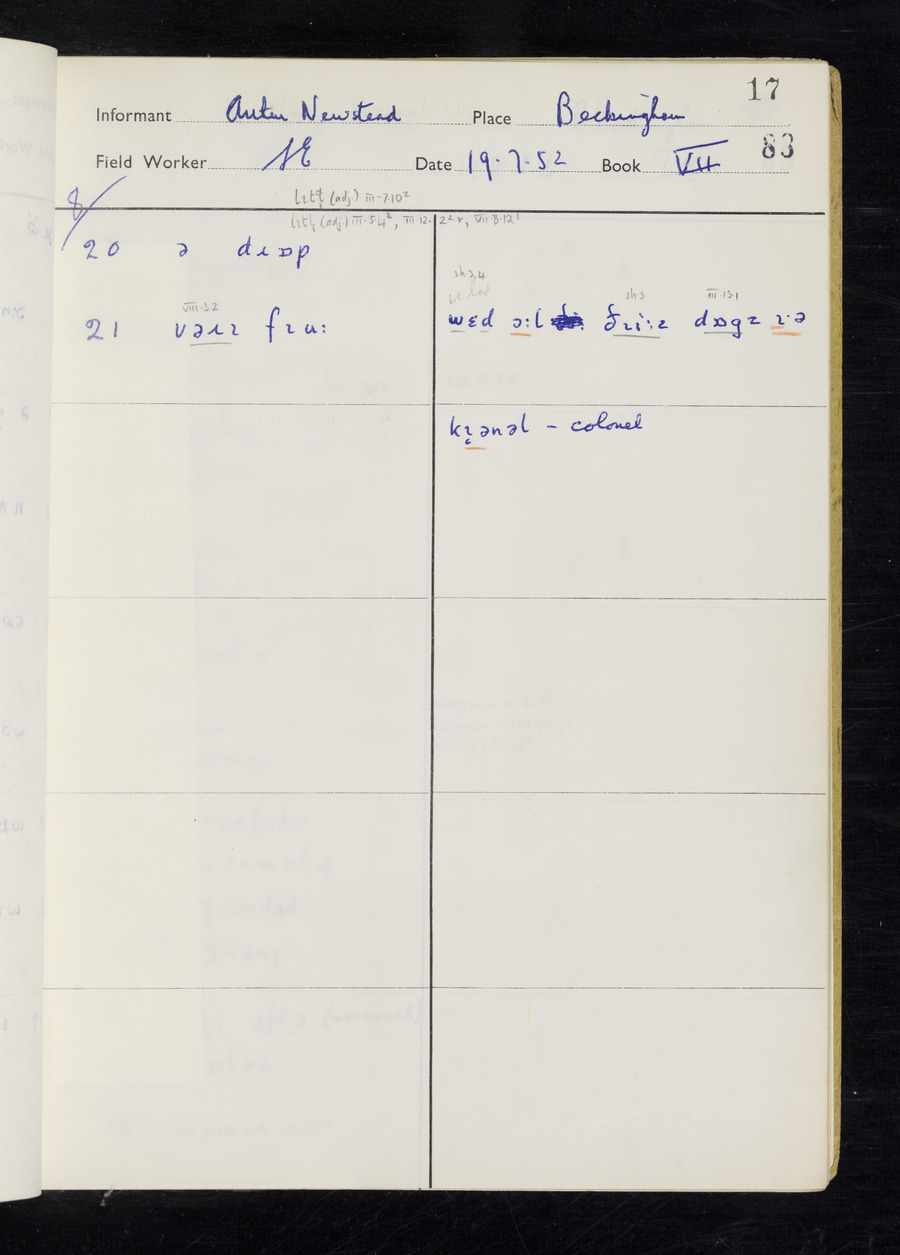 17
Informant Arthur Newstead Place Beckingham
83
Field Worker SE Date 19.7.52 Book VII
8/
lɪtɬ (adj.) III-7.10²
lɪtɬ (adj.) III.5.4², III.12. 2²r, VII.8.12¹
20 ə dɹɒp
sh.3,4
we had
sh.3
III.13.1
VIII.3.2
21 vəɹɪ fɪu:
wɛd ɔ:l ðɪi:z dɒgz ɪ·ə
kɪ̨ənəl – colonel